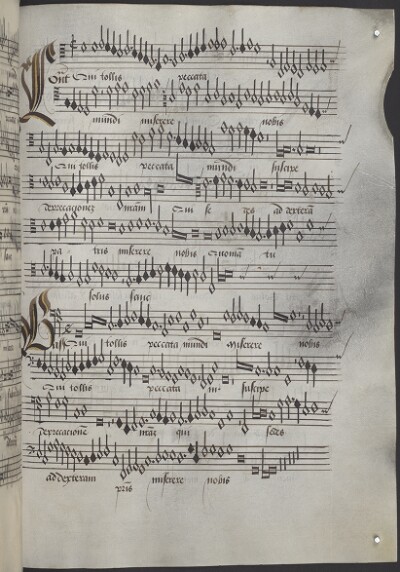 Qui tollis peccata
mundi miserere nobis
Qui tollis peccata mundi suscipe
deprecacionem Qui se des ad dexterā
pa tris miserere nobis Quoniā tu
solus sanc
Qui tollis peccata mundi Miserere nobis
Qui tollis peccata m. suscipe
deprecacionē qui sedes
ad dexteram pris miserere nobis